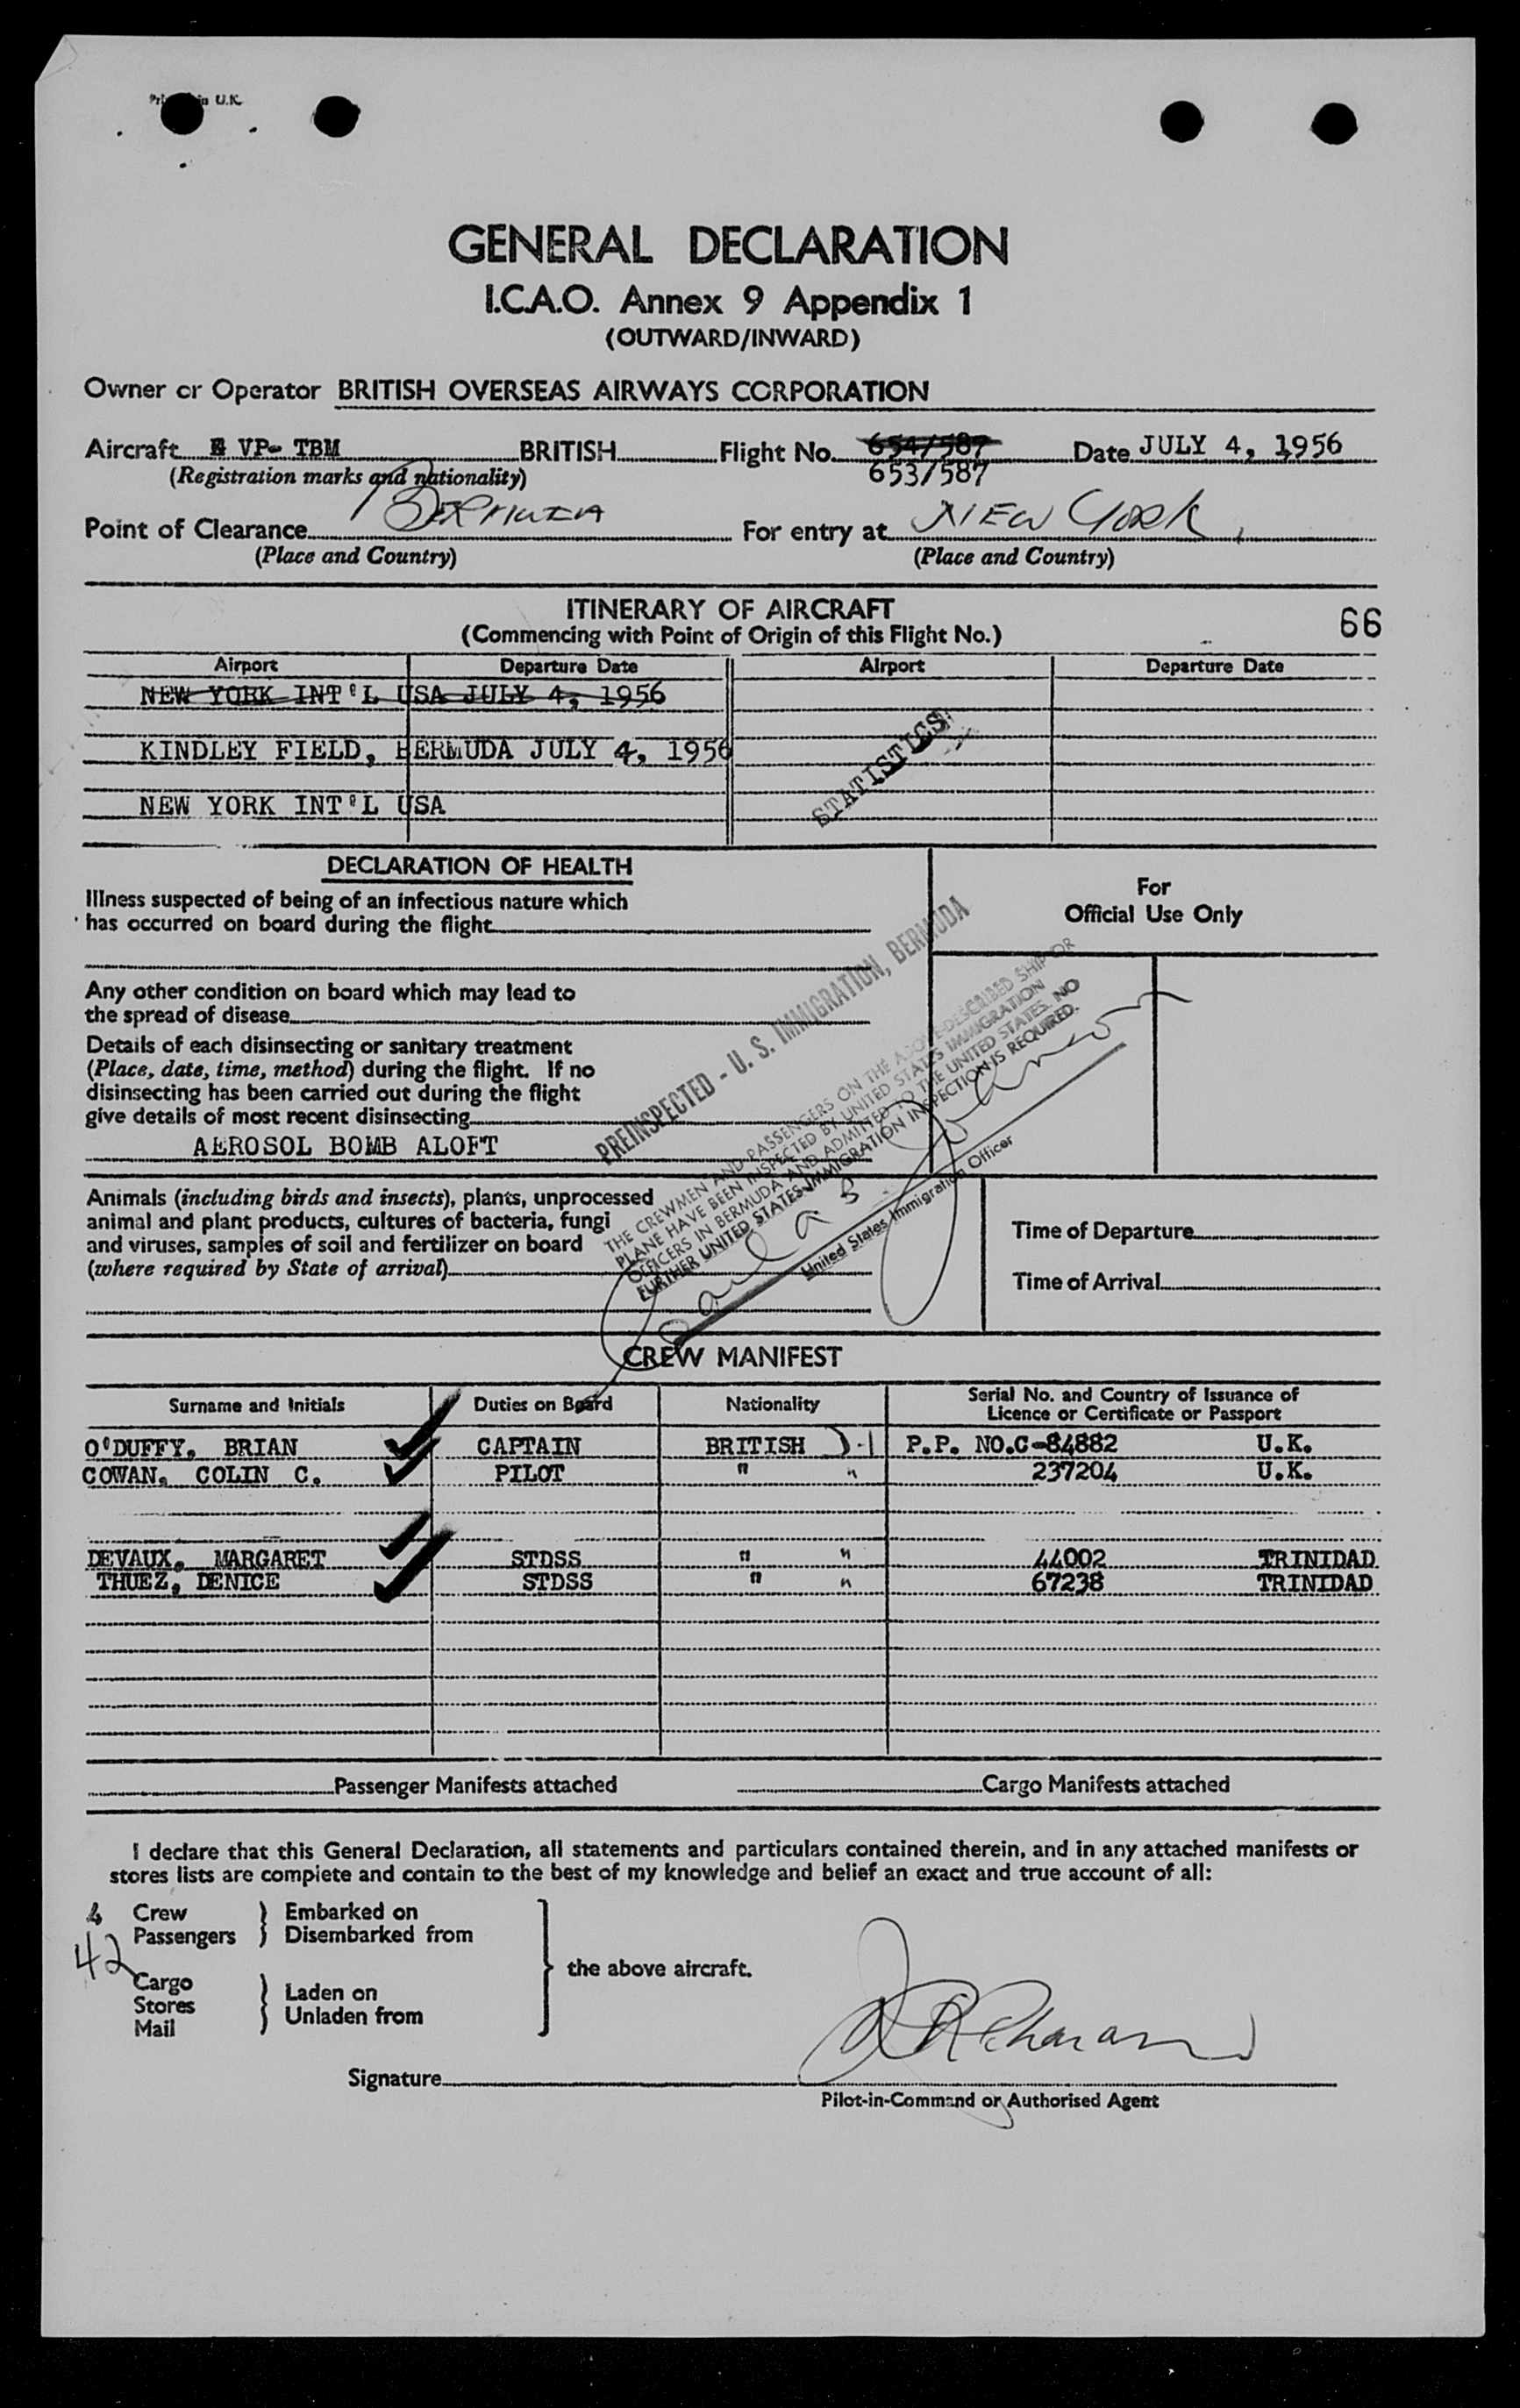 Printed in U.K.
GENERAL DECLARATION
I.C.A.O. Annex 9 Appendix 1
(OUTWARD/INWARD)
Owner or Operator BRITISH OVERSEAS AIRWAYS CORPORATION
Aircraft VP- TBM BRITISH Flight No. 654/587 Date JULY 4, 1956
(Registration marks and nationality) 653/587
Point of Clearance BERMUDA For entry at NEW YORK,
(Place and Country) (Place and Country)
ITINERARY OF AIRCRAFT
66
(Commencing with Point of Origin of this Flight No.)
Airport Departure Date Airport Departure Date
NEW YORK INT'L USA JULY 4, 1956
KINDLEY FIELD, BERMUDA JULY 4, 1956
NEW YORK INT'L USA
STATISTICS
DECLARATION OF HEALTH
For
Official Use Only
Illness suspected of being of an infectious nature which
has occurred on board during the flight
Any other condition on board which may lead to
the spread of disease
Details of each disinsecting or sanitary treatment
(Place, date, time, method) during the flight. If no
disinsecting has been carried out during the flight
give details of most recent disinsecting
AEROSOL BOMB ALOFT
PREINSPECTED - U. S. IMMIGRATION, BERMUDA
THE CREWMEN AND PASSENGERS ON THE ABOVE-DESCRIBED SHIP OR
PLANE HAVE BEEN INSPECTED BY UNITED STATES IMMIGRATION
OFFICERS IN BERMUDA AND ADMITTED TO THE UNITED STATES. NO
FURTHER UNITED STATES IMMIGRATION INSPECTION IS REQUIRED.
United States Immigration Officer
Animals (including birds and insects), plants, unprocessed
animal and plant products, cultures of bacteria, fungi
and viruses, samples of soil and fertilizer on board
(where required by State of arrival)
Time of Departure
Time of Arrival
CREW MANIFEST
Surname and Initials Duties on Board Nationality Serial No. and Country of Issuance of
Licence or Certificate or Passport
O'DUFFY, BRIAN CAPTAIN BRITISH D-1 P.P. NO.C-84882 U.K.
COWAN, COLIN C. PILOT " " 237204 U.K.
DEVAUX, MARGARET STDSS " " 44002 TRINIDAD
THUEZ, DENICE STDSS " " 67238 TRINIDAD
Passenger Manifests attached Cargo Manifests attached
I declare that this General Declaration, all statements and particulars contained therein, and in any attached manifests or
stores lists are complete and contain to the best of my knowledge and belief an exact and true account of all:
4 Crew } Embarked on
42 Passengers } Disembarked from
the above aircraft.
Cargo
Stores } Laden on
Mail } Unladen from
Signature
Pilot-in-Command or Authorised Agent